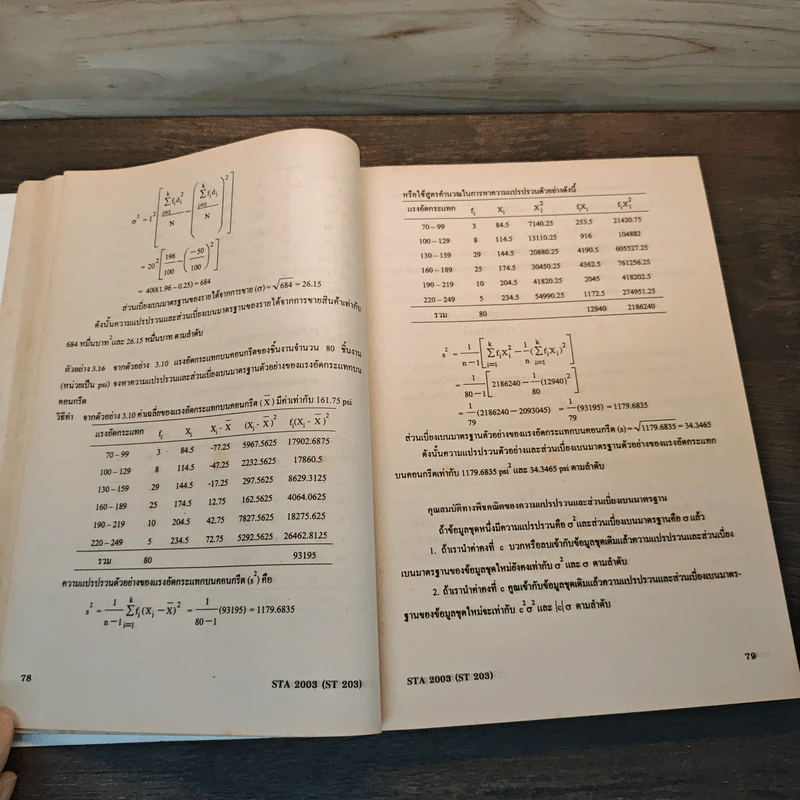 σ² = I² [ Σfᵢdᵢ²/N − (Σfᵢdᵢ/N)² ]
= 20² [ 196/100 − (−50/100)² ]
= 400(1.96−0.25) = 684
ส่วนเบี่ยงเบนมาตรฐานของรายได้จากการขาย (σ) = √684 = 26.15
ดังนั้นความแปรปรวนและส่วนเบี่ยงเบนมาตรฐานของรายได้จากการขายสินค้าเท่ากับ
684 หมื่นบาท² และ 26.15 หมื่นบาท ตามลำดับ
ตัวอย่าง 3.16 จากตัวอย่าง 3.10 แรงอัดกระแทกบนคอนกรีตของชิ้นงานจำนวน 80 ชิ้นงาน
(หน่วยเป็น psi) จงหาความแปรปรวนและส่วนเบี่ยงเบนมาตรฐานตัวอย่างของแรงอัดกระแทกบน
คอนกรีต
วิธีทำ จากตัวอย่าง 3.10 ค่าเฉลี่ยของแรงอัดกระแทกบนคอนกรีต (X̄) มีค่าเท่ากับ 161.75 psi
แรงอัดกระแทก fᵢ Xᵢ Xᵢ - X̄ (Xᵢ - X̄)² fᵢ(Xᵢ - X̄)²
70 – 99 3 84.5 -77.25 5967.5625 17902.6875
100 – 129 8 114.5 -47.25 2232.5625 17860.5
130 – 159 29 144.5 -17.25 297.5625 8629.3125
160 – 189 25 174.5 12.75 162.5625 4064.0625
190 – 219 10 204.5 42.75 7827.5625 18275.625
220 – 249 5 234.5 72.75 5292.5625 26462.8125
รวม 80 93195
ความแปรปรวนตัวอย่างของแรงอัดกระแทกบนคอนกรีต (s²) คือ
s² = 1/(n−1) Σfᵢ(Xᵢ − X̄)² = 1/(80−1) (93195) = 1179.6835
78
STA 2003 (ST 203)
หรือใช้สูตรคำนวณในการหาความแปรปรวนตัวอย่างดังนี้
แรงอัดกระแทก fᵢ Xᵢ Xᵢ² fᵢXᵢ fᵢXᵢ²
70 – 99 3 84.5 7140.25 253.5 21420.75
100 – 129 8 114.5 13110.25 916 104882
130 – 159 29 144.5 20880.25 4190.5 605527.25
160 – 189 25 174.5 30450.25 4362.5 761256.25
190 – 219 10 204.5 41820.25 2045 418202.5
220 – 249 5 234.5 54990.25 1172.5 274951.25
รวม 80 12940 2186240
s² = 1/(n−1) [ ΣfᵢXᵢ² − 1/n (ΣfᵢXᵢ)² ]
= 1/(80−1) [ 2186240 − 1/80 (12940)² ]
= 1/79 (2186240 − 2093045) = 1/79 (93195) = 1179.6835
ส่วนเบี่ยงเบนมาตรฐานตัวอย่างของแรงอัดกระแทกบนคอนกรีต (s) = √1179.6835 = 34.3465
ดังนั้นความแปรปรวนตัวอย่างและส่วนเบี่ยงเบนมาตรฐานตัวอย่างของแรงอัดกระแทก
บนคอนกรีตเท่ากับ 1179.6835 psi² และ 34.3465 psi ตามลำดับ
คุณสมบัติทางพีชคณิตของความแปรปรวนและส่วนเบี่ยงเบนมาตรฐาน
ถ้าข้อมูลชุดหนึ่งมีความแปรปรวนคือ σ² และส่วนเบี่ยงเบนมาตรฐานคือ σ แล้ว
1. ถ้าเรานำค่าคงที่ c บวกหรือลบเข้ากับข้อมูลชุดเดิมแล้วความแปรปรวนและส่วนเบี่ยง
เบนมาตรฐานของข้อมูลชุดใหม่ยังคงเท่ากับ σ² และ σ ตามลำดับ
2. ถ้าเรานำค่าคงที่ c คูณเข้ากับข้อมูลชุดเดิมแล้วความแปรปรวนและส่วนเบี่ยงเบนมาตร-
ฐานของข้อมูลชุดใหม่จะเท่ากับ c²σ² และ |c|σ ตามลำดับ
79
STA 2003 (ST 203)